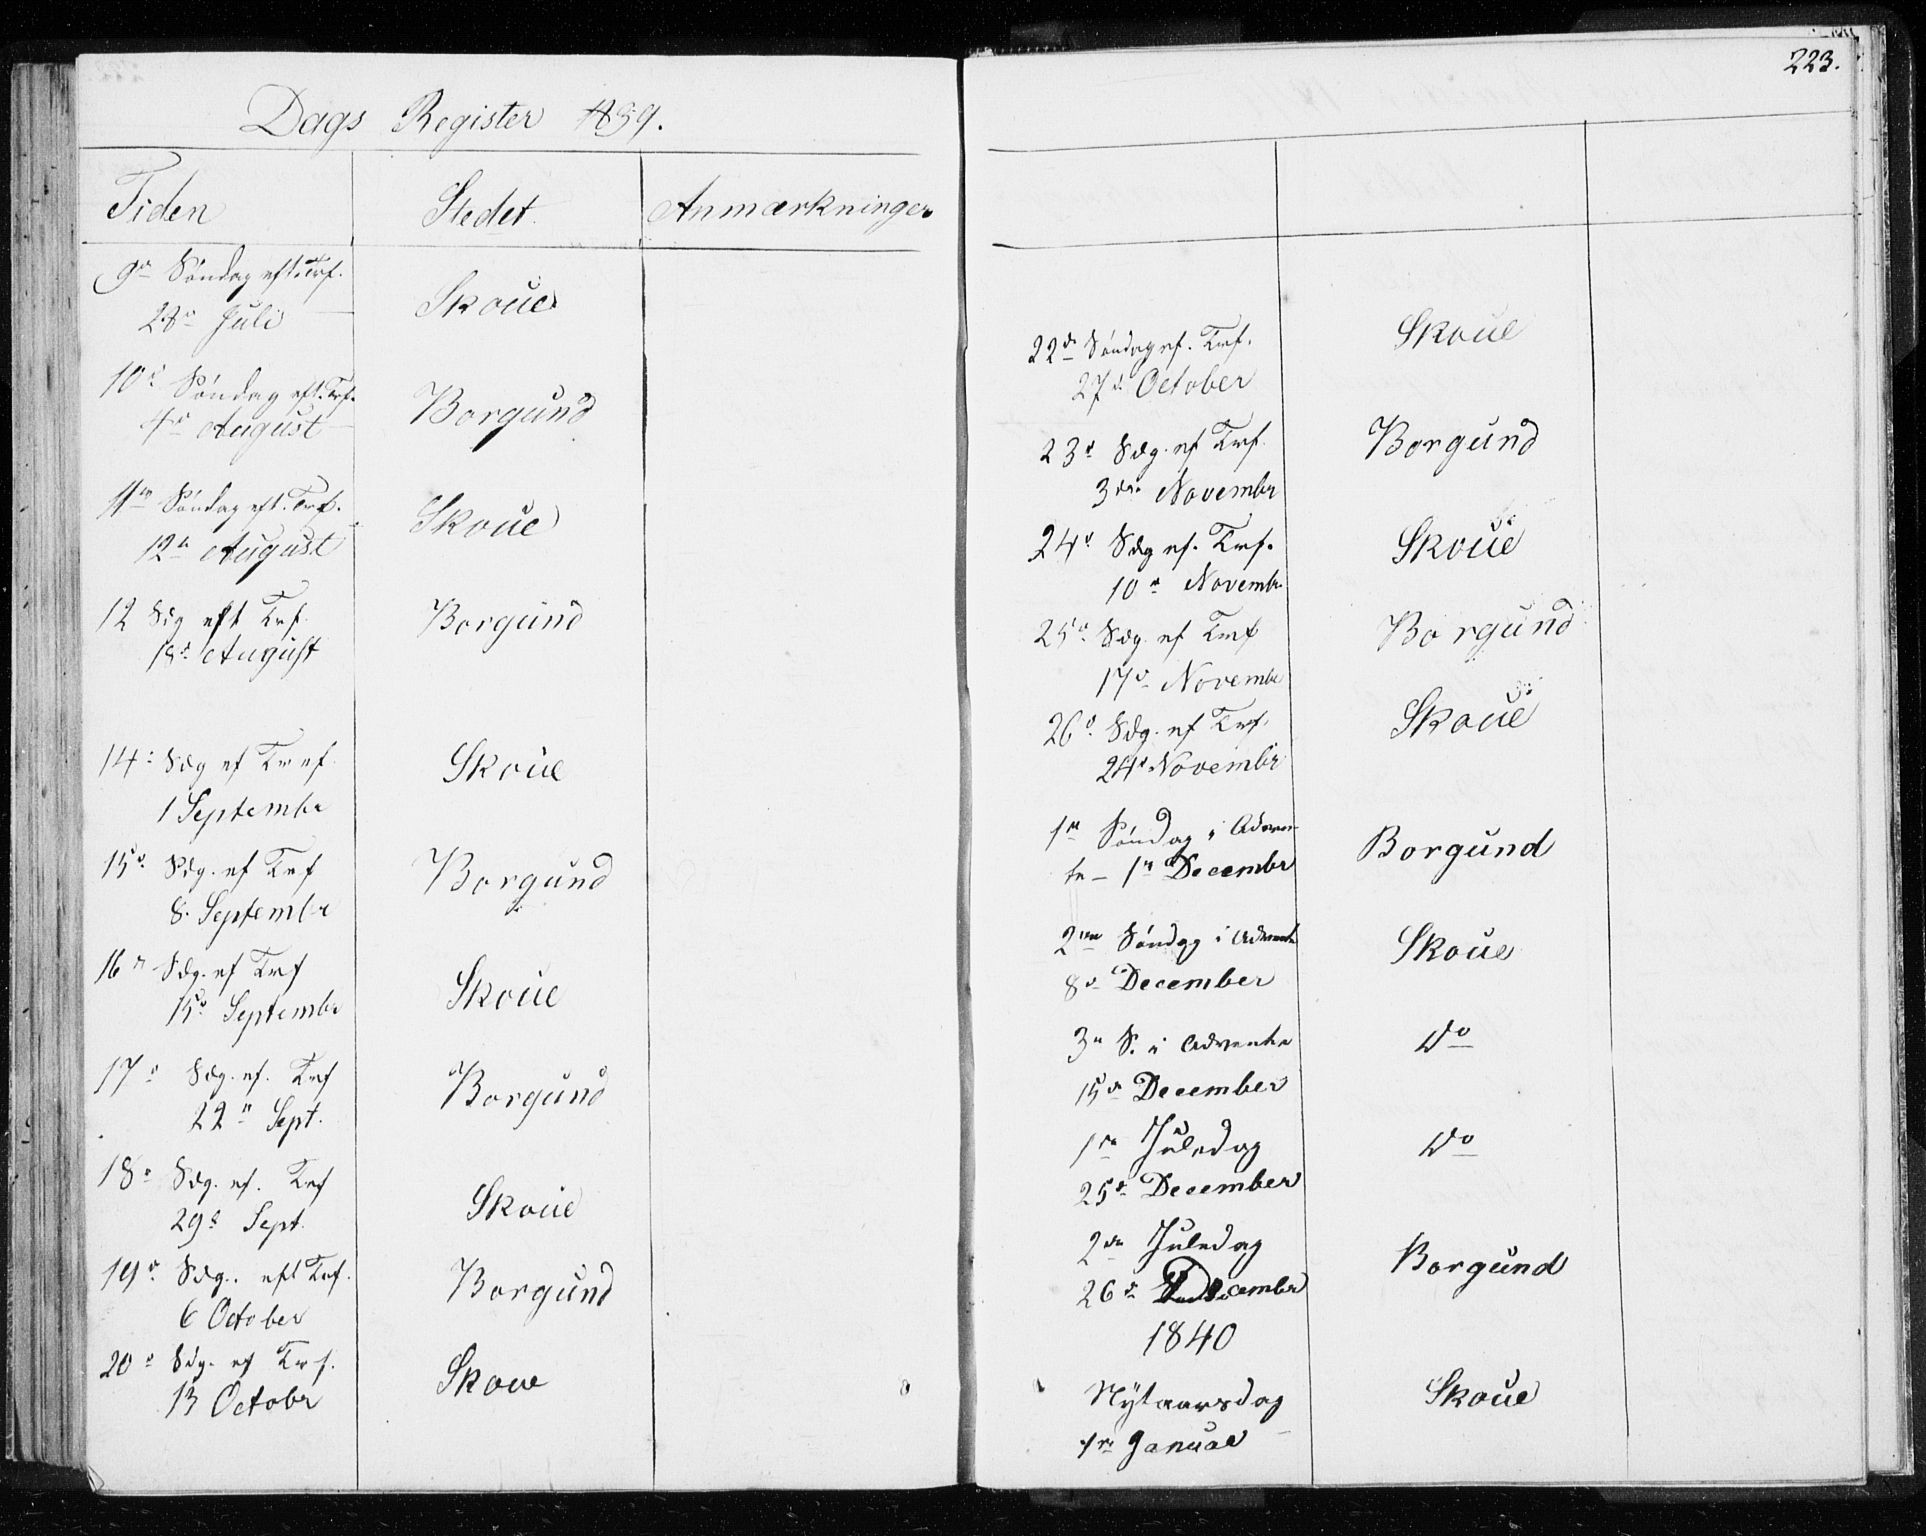 Dags Register 1839.
Tiden Stedet Anmærkninger
9de Søndag eft. Trf.
28de Juli
Skoue
10de Søndag eft. Trf.
4de August
Borgund
11te Søndag eft. Trf.
12te August
Skoue
12 Sdg eft Trf.
18de August
Borgund
14de Sdg ef Tref
1 Septembr
Skoue
15de Sdg. ef Trf
8. Septembr
Borgund
16de Sdg. ef Trf
15de Septembr
Skoue
17de Sdg. ef. Trf
22de Sept.
Borgund
18de Sdg. ef. Trf
29de Sept.
Skoue
19de Sdg. eft Trf.
6 October
Borgund
20de Sdg. ef Trf.
13 Octobr
Skoue
223.
22de Søndag ef. Trf.
27de October
Skoue
23de Sdg. ef Trf.
3die Novembr
Borgund
24de Sdg ef. Trf.
10de Novembr
Skoue
25de Sdg. ef Tref
17de Novembr
Borgund
26de Sdg. ef Trf.
24de Novembr
Skoue
1ste Søndag i Adven-
te – 1ste Decembr
Borgund
2den Søndag i Advente
8de December
Skoue
3die S. i Advente
15de December
Do
1ste Juledag
25de December
Do
2den Juledag
26de Decembr
Borgund
1840
Nytaarsdag
1ste Januar
Skoue